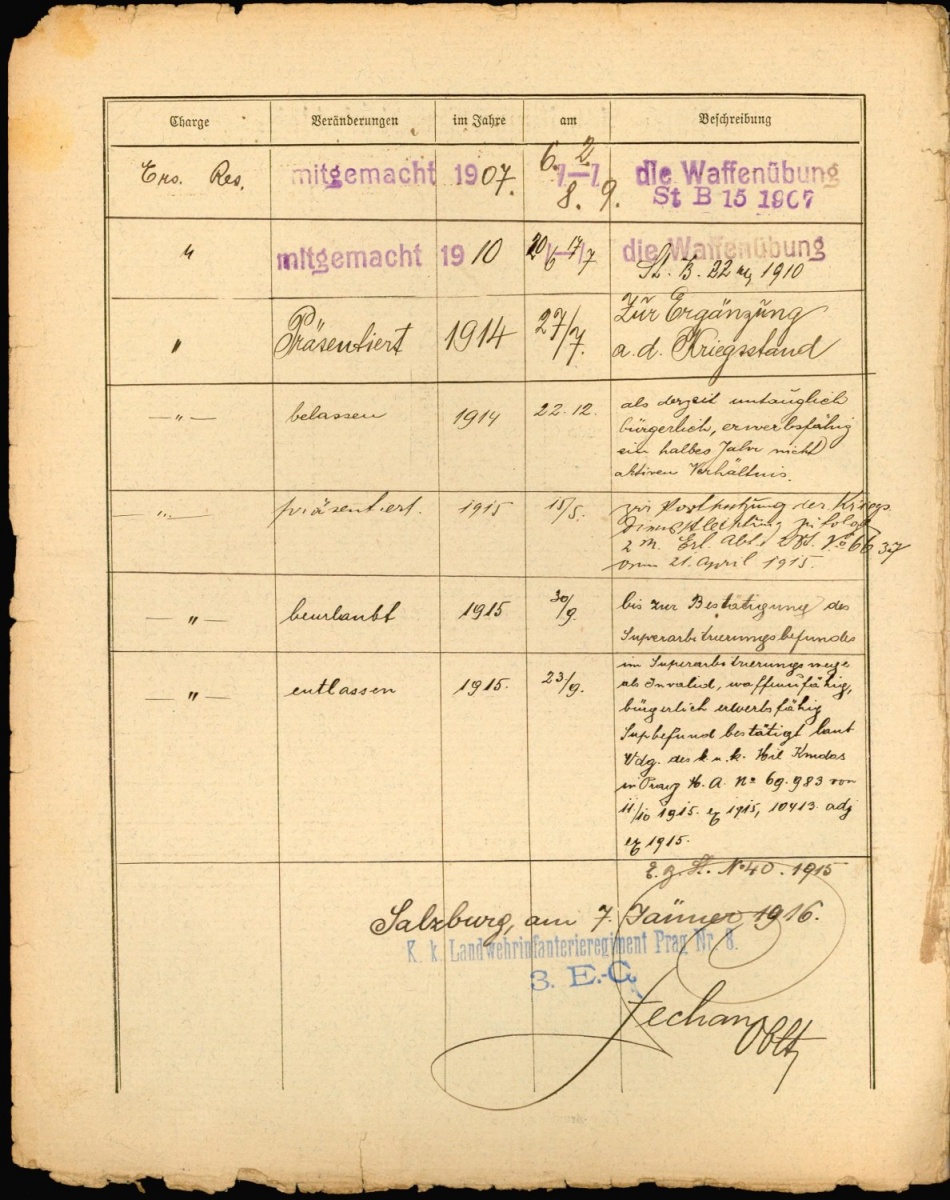 Charge Veränderungen im Jahre am Beschreibung
Ers. Res. mitgemacht 1907. die Waffenübung
St B 15 1907
" mitgemacht 1910 die Waffenübung
St. B. 22 1910
" Präsentiert 1914 27/7. Zur Ergänzung
a. d. Kriegsstand
—"— belassen 1914 22.12. als derzeit untauglich
bürgerlich, erwerbsfähig
ein halbes Jahr nicht
aktiven Verhältnis.
—"— präsentiert. 1915 15/5. zur der Kriegs
zufolge
Erl. Abt. No 6637
vom 21. April 1915.
—"— beurlaubt 1915 30/9. bis zur Bestätigung des
Superarbitrierungsbefundes
—"— entlassen 1915. 23/9. im Superarbitrierungswege
als Invalid, waffenunfähig,
bürgerlich erwerbsfähig
Supbefund bestätigt laut
Vdg. des k. u. k. Mil Kmdos
in Prag M. A. No 69.983 von
11/10 1915. 1915, 10413 adj
1915.
E. g. St. No 40. 1915
Salzburg, am 7. Jänner 1916.
K. k. Landwehrinfanterieregiment Prag Nr. 8.
3. E.-C.
Zechan
Oblt